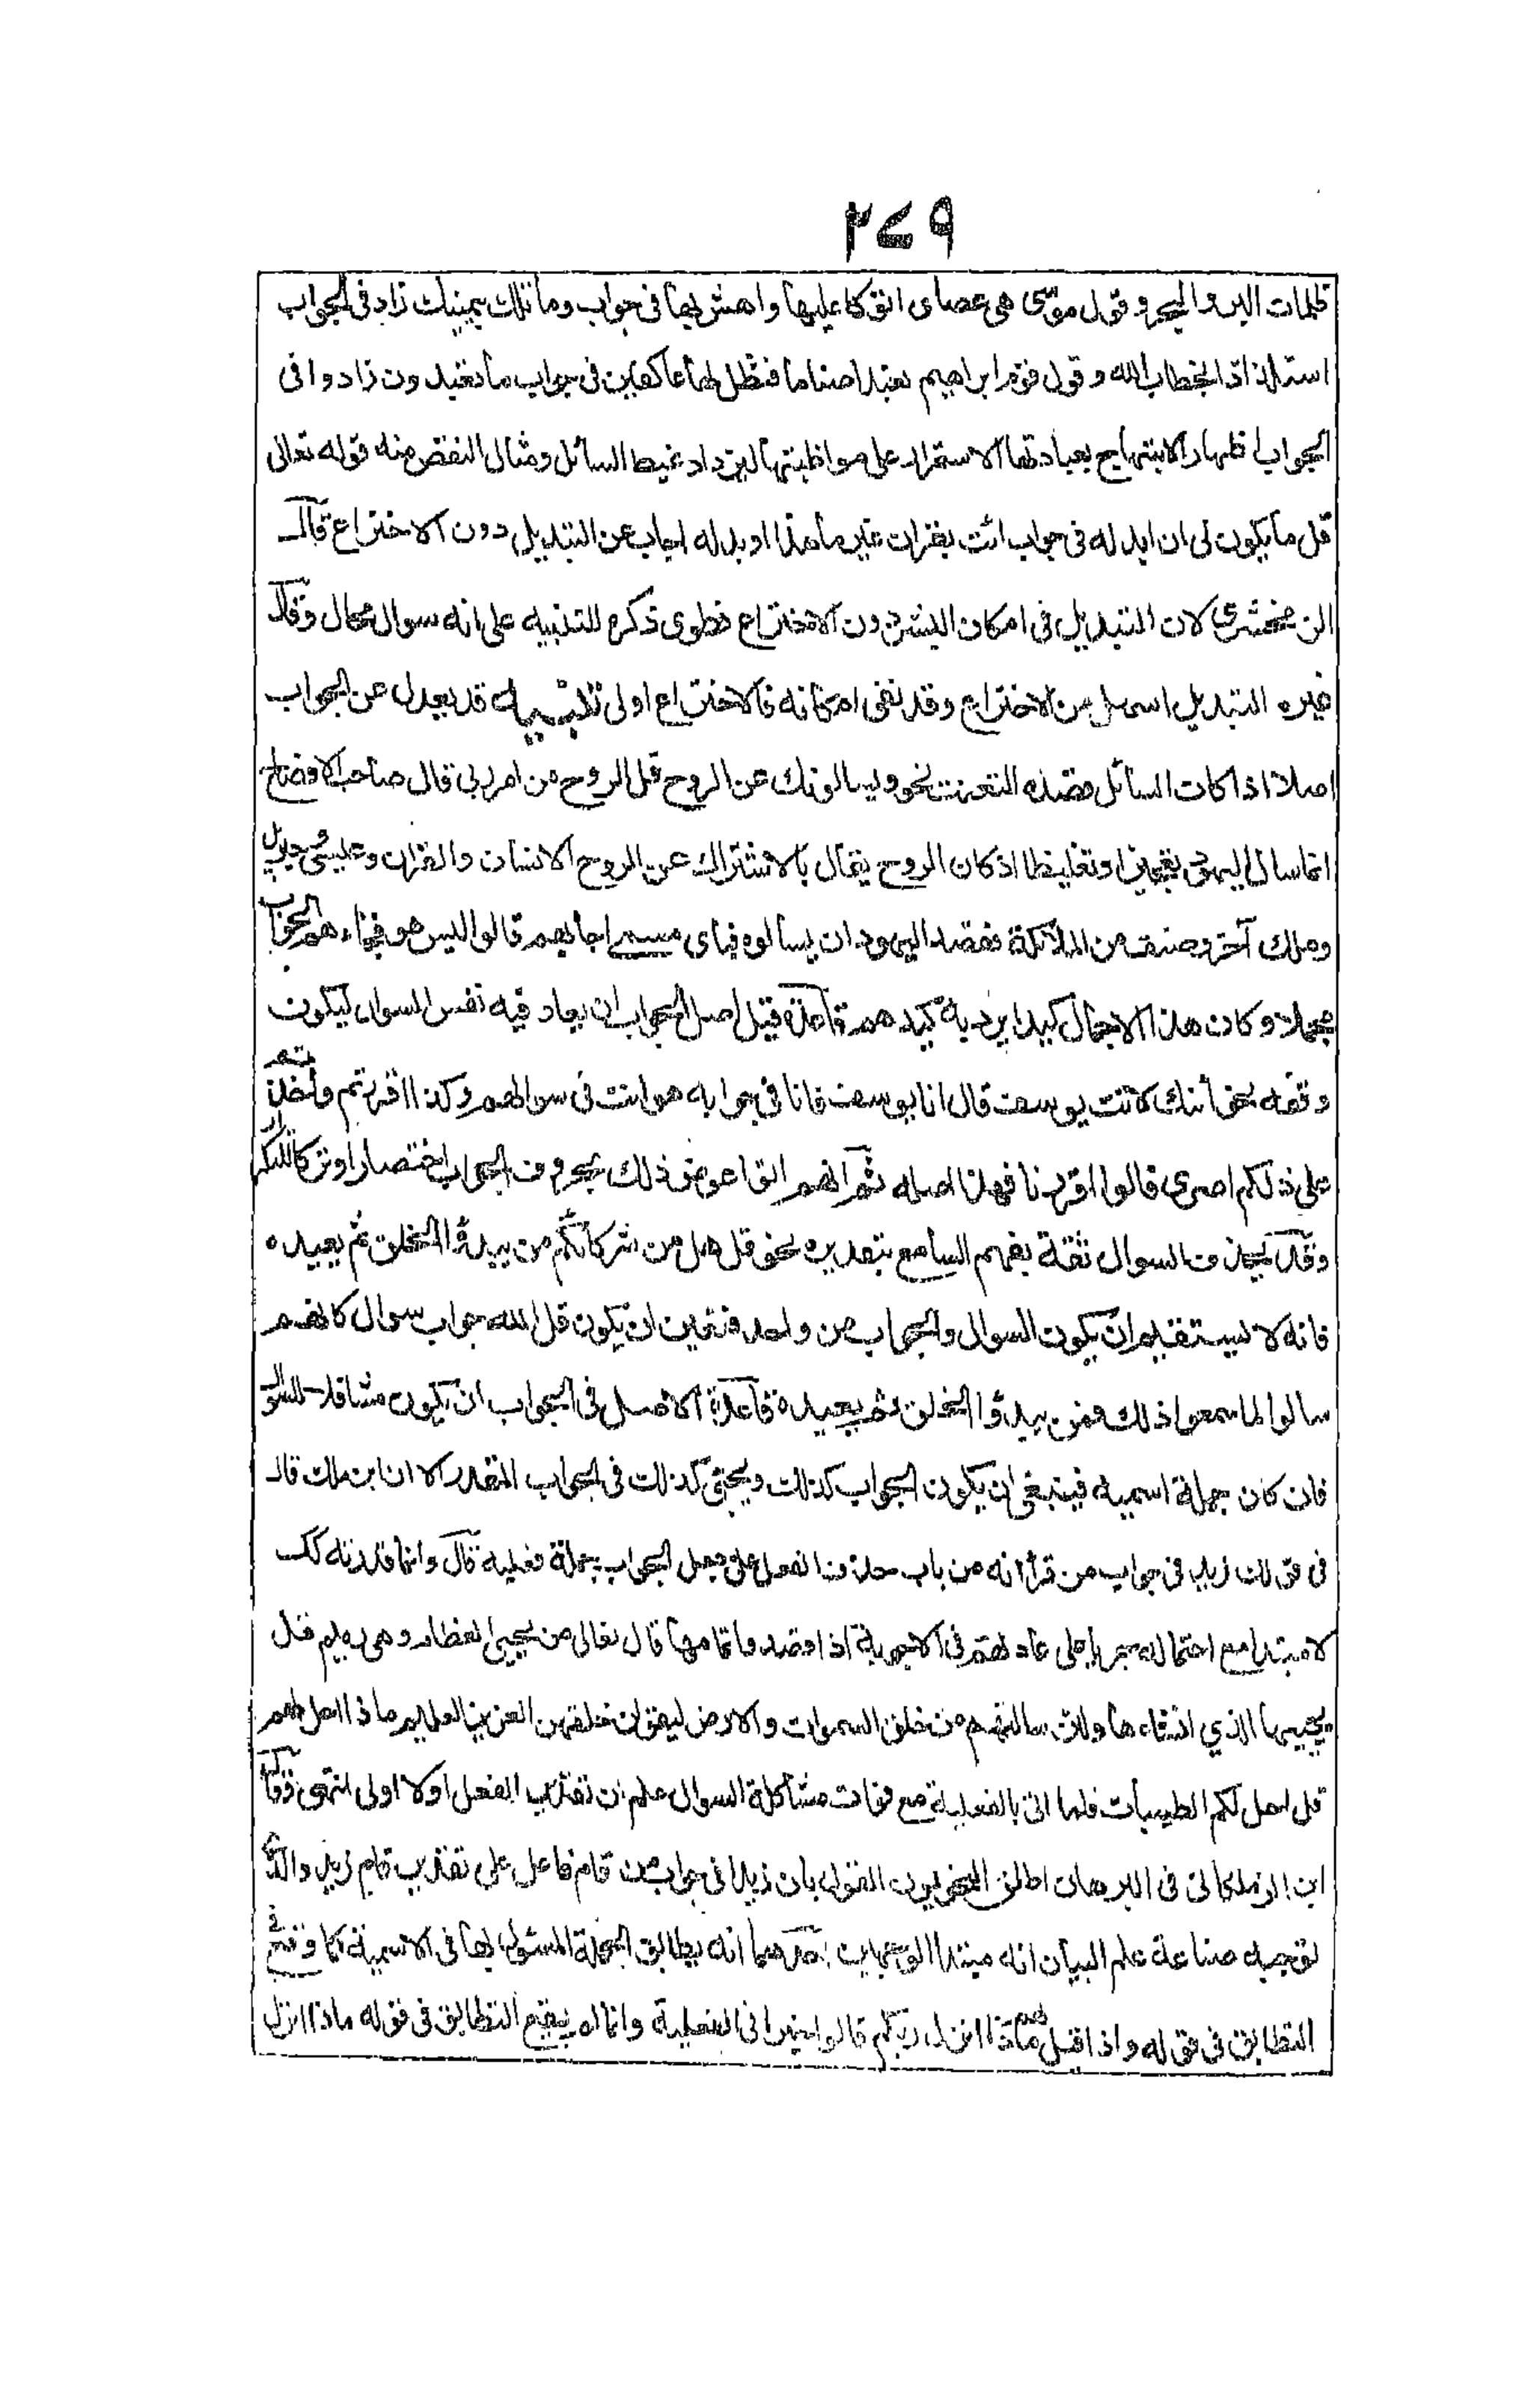 ٢٧٩
ظلمات البر والبحر وقول موسى هى عصاى اتوكا عليها واهش بها فى جواب وما تلك بيمينك زاد فى الجواب
استلذاذا لخطاب الله وقول قوم ابراهيم نعبد اصناما فنظل لها عاكفين فى جواب ما تعبدون زادوا فى
الجواب اظهار الابتهاج بعبادتها الاستمرار على مواظبتها ليزداد غيط السائل ومثال النقص منه قوله تعالى
قل ما يكون لى ان ابدله فى جواب ائت بقران غير هذا او بدله اجاب عن التبديل دون الاختراع قال
الزمخشرى لان التبديل فى امكان البشر دون الاختراع فطوى ذكره للتنبيه على انه سوال محال وقال
غيره التبديل اسهل من الاختراع وقد نفى امكانه فالاختراع اولى تنبيه قد يعدل عن الجواب
اصلا اذا كان السائل قصده التعنت نحو ويسالونك عن الروح قل الروح من امر ربى قال صاحب الافصاح
انما سال اليهود تعجيزا وتغليظا اذ كان الروح يقال بالاشتراك عن الروح الانسان والقران وعيسى وجبريل
وملك آخر وصنف من الملائكة فقصد اليهود ان يسالوه فباى مسمى اجابهم قالوا ليس هو فجاءهم الجواب
مجملا وكان هذا الاجمال كيدا يرد به كيدهم قاعدة قيل اصل الجواب ان يعاد فيه نفس السوال ليكون
وفقه نحو أئنك لانت يوسف قال انا يوسف فانا فى جوابه هو انت فى سوالهم وكذا اقررتم واخذتم
على ذلكم اصرى قالوا اقررنا فهذا اصله ثم انهم اتوا عوض ذلك بحروف الجواب اختصارا وتركا للتكرار
وقد يحذف السوال ثقة بفهم السامع بتقديره نحو قل هل من شركائكم من يبدؤا الخلق ثم يعيده
فانه لا يستقيم ان يكون السوال والجواب من واحد فتعين ان يكون قل الله جواب سوال كانهم
سالوا لما سمعوا ذلك فمن يبدؤا الخلق ثم يعيده قاعدة الاصل فى الجواب ان يكون مشاكلا للسوال
فان كان جملة اسمية فينبغى ان يكون الجواب كذلك ويجئ كذلك فى الجواب المقدر الا ان ابن ملك قال
فى قولك زيد فى جواب من قرأ انه من باب حذف الفعل على جعل الجواب جملة فعلية قال وانما قدرته كك
لا مبتدا مع احتماله جريا على عادتهم فى الاجوبة اذا قصدوا تمامها قال تعالى من يحيى العظام وهى رميم قل
يحييها الذي انشاءها ولئن سالتهم من خلق السموات والارض ليقولن خلقهن العزيز العليم ماذا احل لهم
قل احل لكم الطيبات فلما اتى بالفعلية مع فوات مشاكلة السوال علم ان تقدير الفعل اولا اولى انتهى وقال
ابن الزملكانى فى البرهان اطلق النحويون القول بان زيدا فى جواب من قام فاعل على تقدير قام زيد والذى
توجبه صناعة علم البيان انه مبتدا لوجهين احدهما انه يطابق الجملة المسئول بها فى الاسمية كما وقع فى
التطابق فى قوله واذا قيل لهم ماذا انزل ربكم قالوا خيرا فى الفعلية وانما لم يقع التطابق فى قوله ماذا انزل